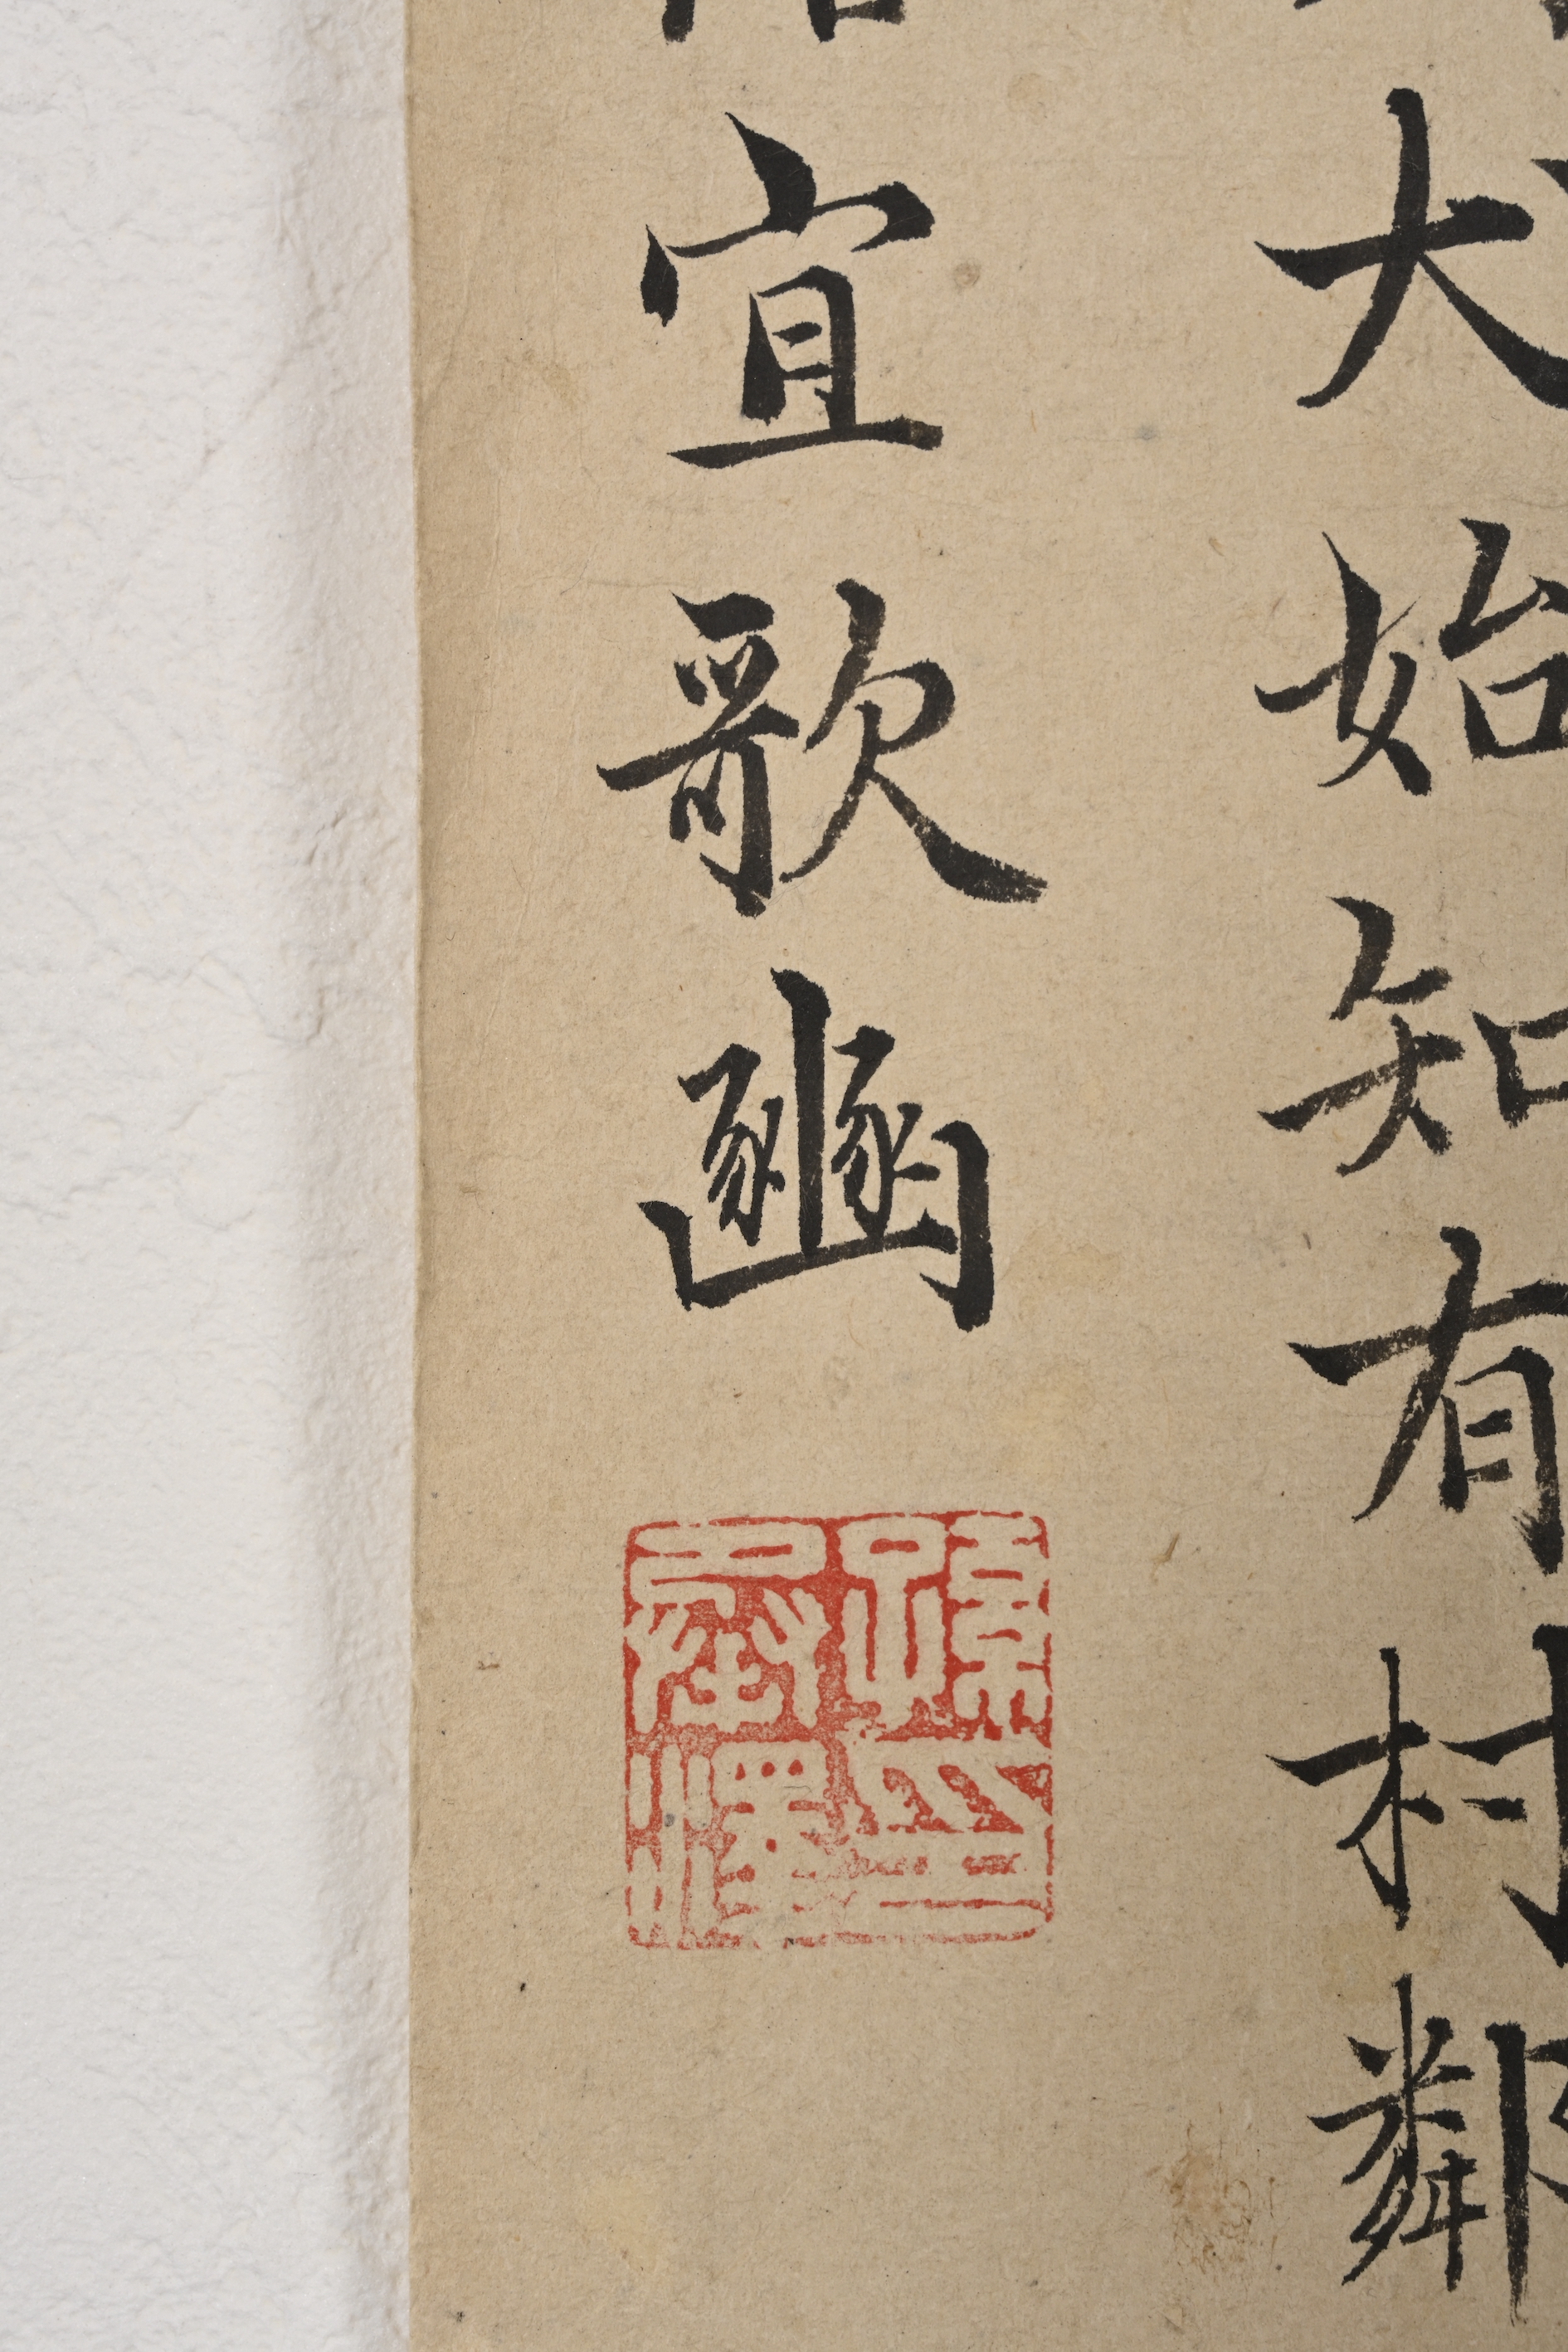 犬始知有村鄰
宜歌豳